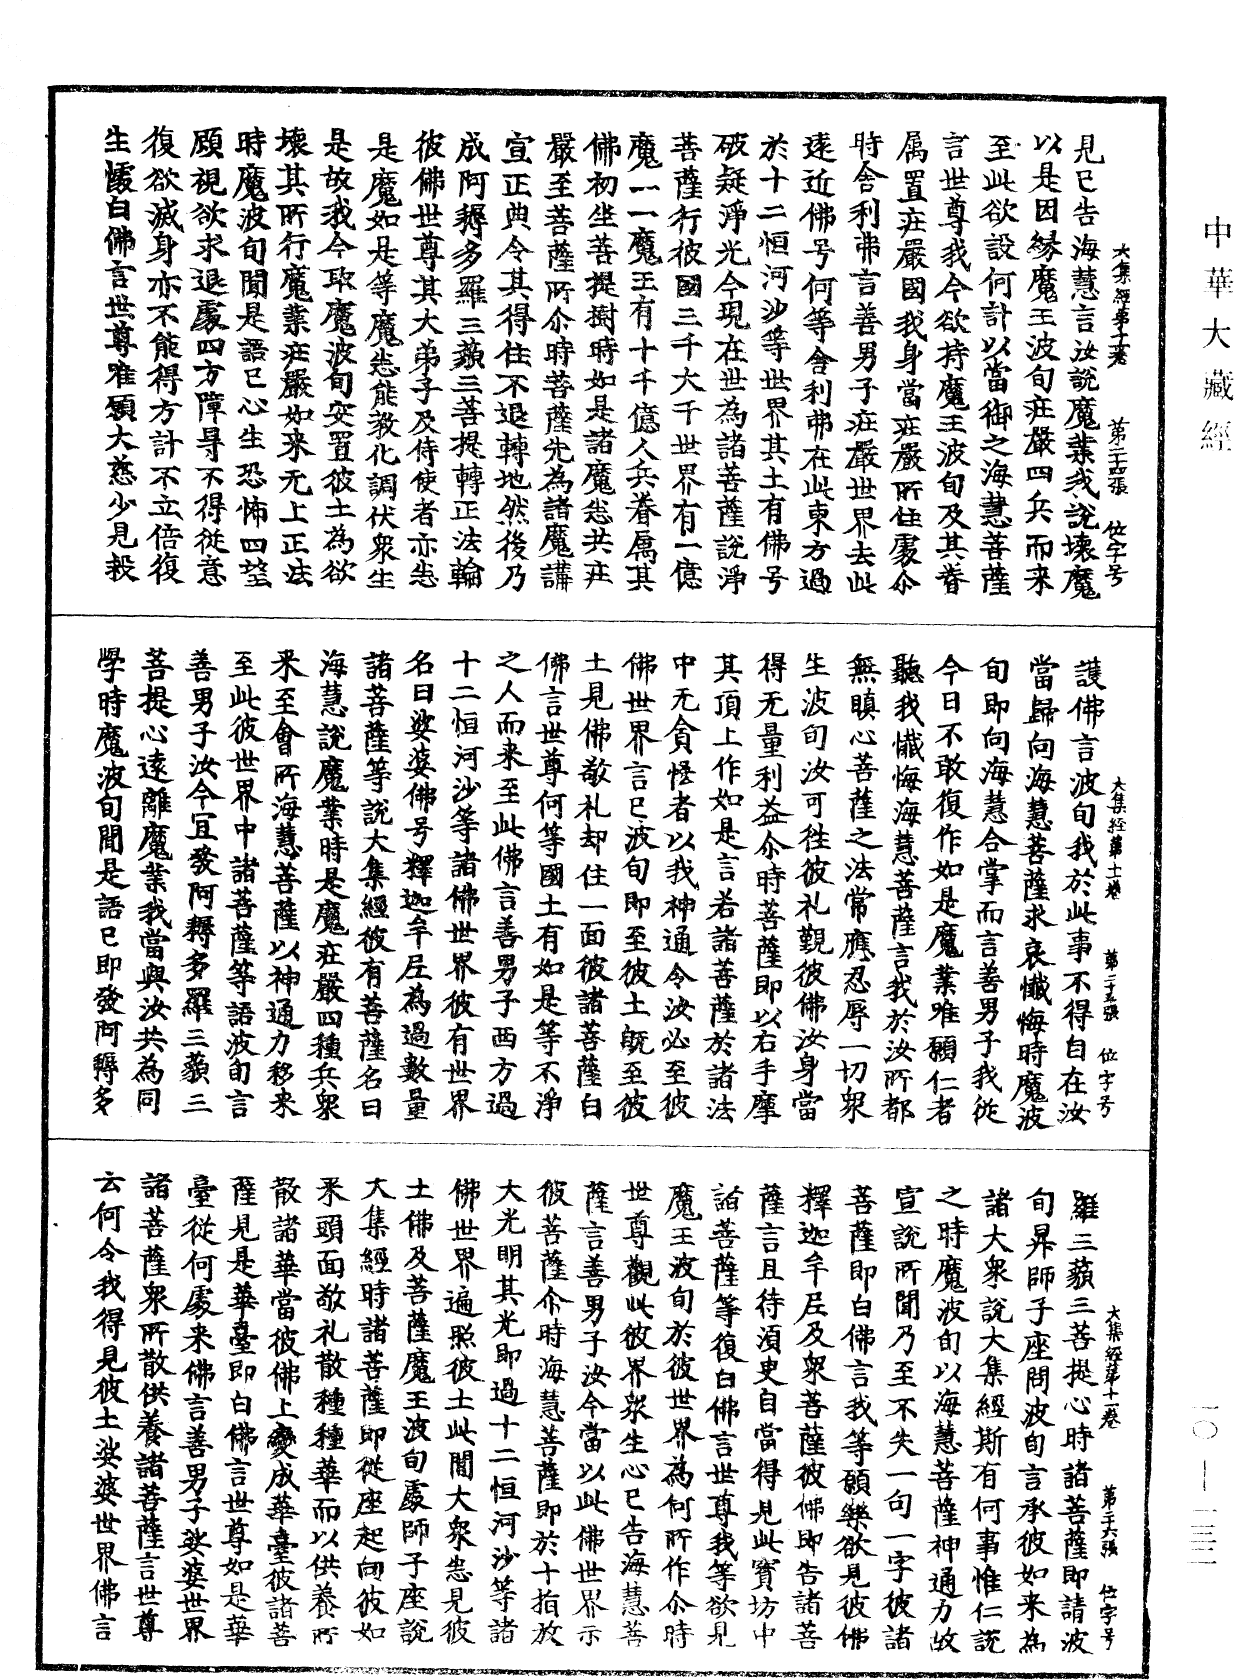 中華大藏經
大集經第十一卷　第二十四張　位字号
見已告海慧言汝說魔業我說壞魔
以是因緣魔王波旬莊嚴四兵而来
至此欲設何計以當御之海慧菩薩
言世尊我今欲持魔王波旬及其眷
属置莊嚴國我身當莊嚴所住處尒
時舍利弗言善男子莊嚴世界去此
遠近佛号何等舍利弗在此東方過
於十二恒河沙等世界其土有佛号
破疑淨光今現在世為諸菩薩說淨
菩薩行彼國三千大千世界有一億
魔一一魔王有十千億人兵眷属其
佛初坐菩提樹時如是諸魔悉共莊
嚴至菩薩所尒時菩薩先為諸魔講
宣正典令其得住不退轉地然後乃
成阿耨多羅三藐三菩提轉正法輪
彼佛世尊其大弟子及侍使者亦悉
是魔如是等魔悉能教化調伏衆生
是故我今取魔波旬安置彼土為欲
壞其所行魔業莊嚴如来无上正法
時魔波旬聞是語已心生恐怖四望
顧視欲求退處四方障㝵不得從意
復欲滅身亦不能得方計不立倍復
生懅白佛言世尊唯願大慈少見救
大集經第十一卷　第二十五張　位字号
護佛言波旬我於此事不得自在汝
當歸向海慧菩薩求哀懺悔時魔波
旬即向海慧合掌而言善男子我從
今日不敢復作如是魔業唯願仁者
聽我懺悔海慧菩薩言我於汝所都
無瞋心菩薩之法常應忍辱一切衆
生波旬汝可往彼礼覲彼佛汝身當
得无量利益尒時菩薩即以右手摩
其頂上作如是言若諸菩薩於諸法
中无貪悋者以我神通令汝必至彼
佛世界言已波旬即至彼土既至彼
土見佛敬礼却住一面彼諸菩薩白
佛言世尊何等國土有如是等不淨
之人而来至此佛言善男子西方過
十二恒河沙等諸佛世界彼有世界
名曰娑婆佛号釋迦牟尼為過數量
諸菩薩等說大集經彼有菩薩名曰
海慧說魔業時是魔莊嚴四種兵衆
来至會所海慧菩薩以神通力移来
至此彼世界中諸菩薩等語波旬言
善男子汝今冝發阿耨多羅三藐三
菩提心遠離魔業我當與汝共為同
學時魔波旬聞是語已即發阿耨多
大集經第十一卷　第二十六張　位字号
羅三藐三菩提心時諸菩薩即請波
旬昇師子座問波旬言承彼如来為
諸大衆說大集經斯有何事惟仁說
之時魔波旬以海慧菩薩神通力故
宣說所聞乃至不失一句一字彼諸
菩薩即白佛言我等願樂欲見彼佛
釋迦牟尼及衆菩薩彼佛即告諸菩
薩言且待湏臾自當得見此寶坊中
諸菩薩等復白佛言世尊我等欲見
魔王波旬於彼世界為何所作尒時
世尊觀此彼界衆生心已告海慧菩
薩言善男子汝今當以此佛世界示
彼菩薩尒時海慧菩薩即於十指放
大光明其光即過十二恒河沙等諸
佛世界遍照彼土此間大衆悉見彼
土佛及菩薩魔王波旬處師子座說
大集經時諸菩薩即從座起向彼如
来頭面敬礼散種種華而以供養所
散諸華當彼佛上變成華臺彼諸菩
薩見是華臺即白佛言世尊如是華
臺從何處来佛言善男子娑婆世界
諸菩薩衆所散供養諸菩薩言世尊
云何令我得見彼土娑婆世界佛言
一〇—一三二